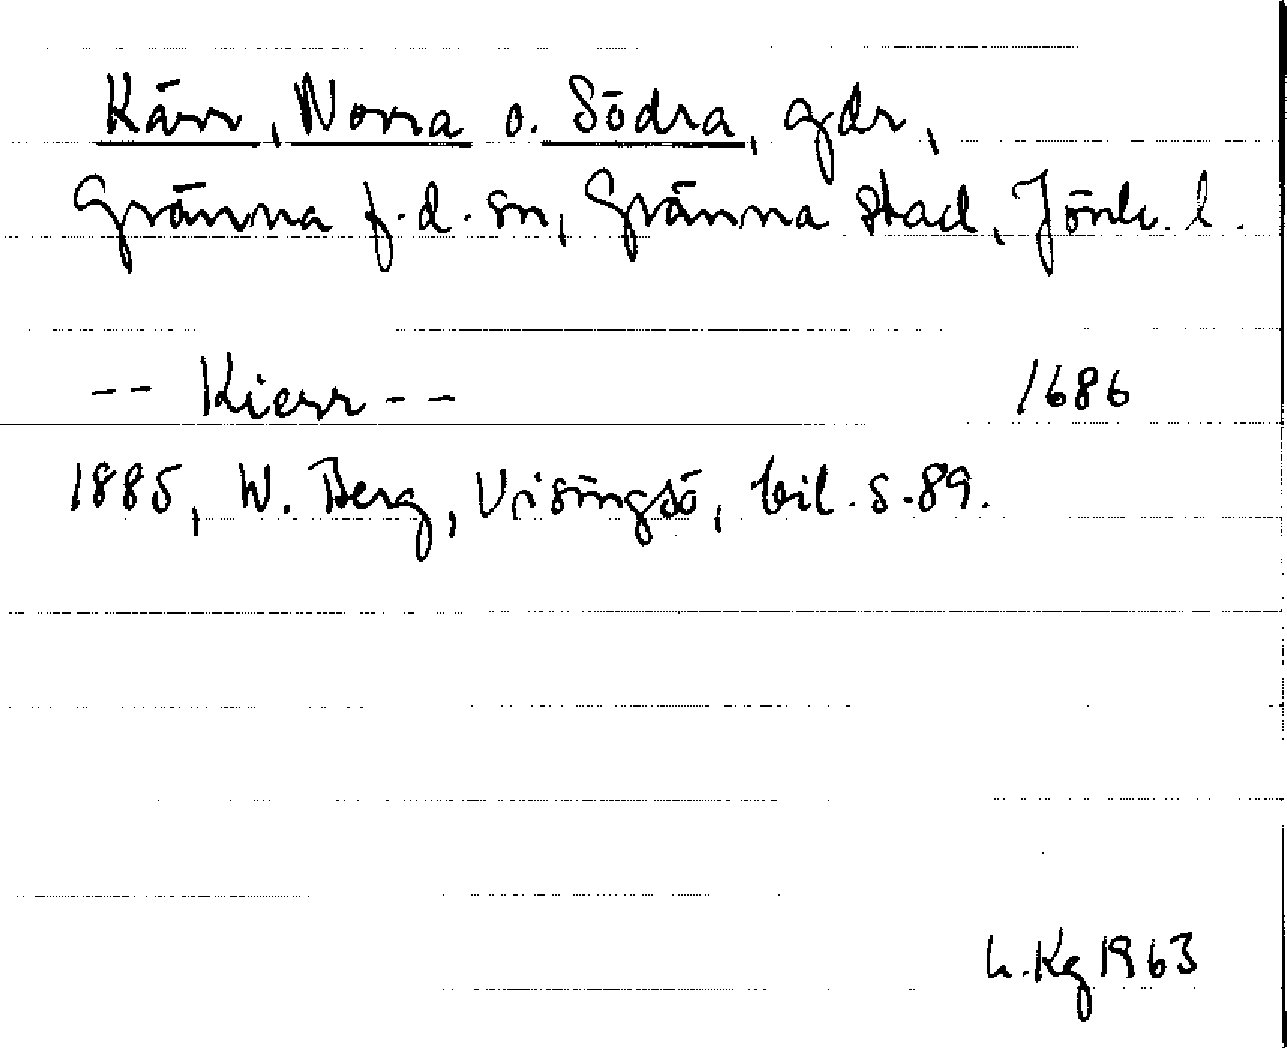 Kärr, Norra o. Södra, gdr,
Gränna f.d. sn, Gränna stad, Jönk. l.
-- Kierr -- 1686
1885, W. Berg, Visingsö, bil. s. 89.
h. Kg 1963